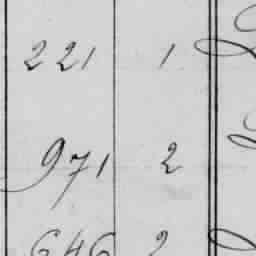 221 1
971 2
646 2